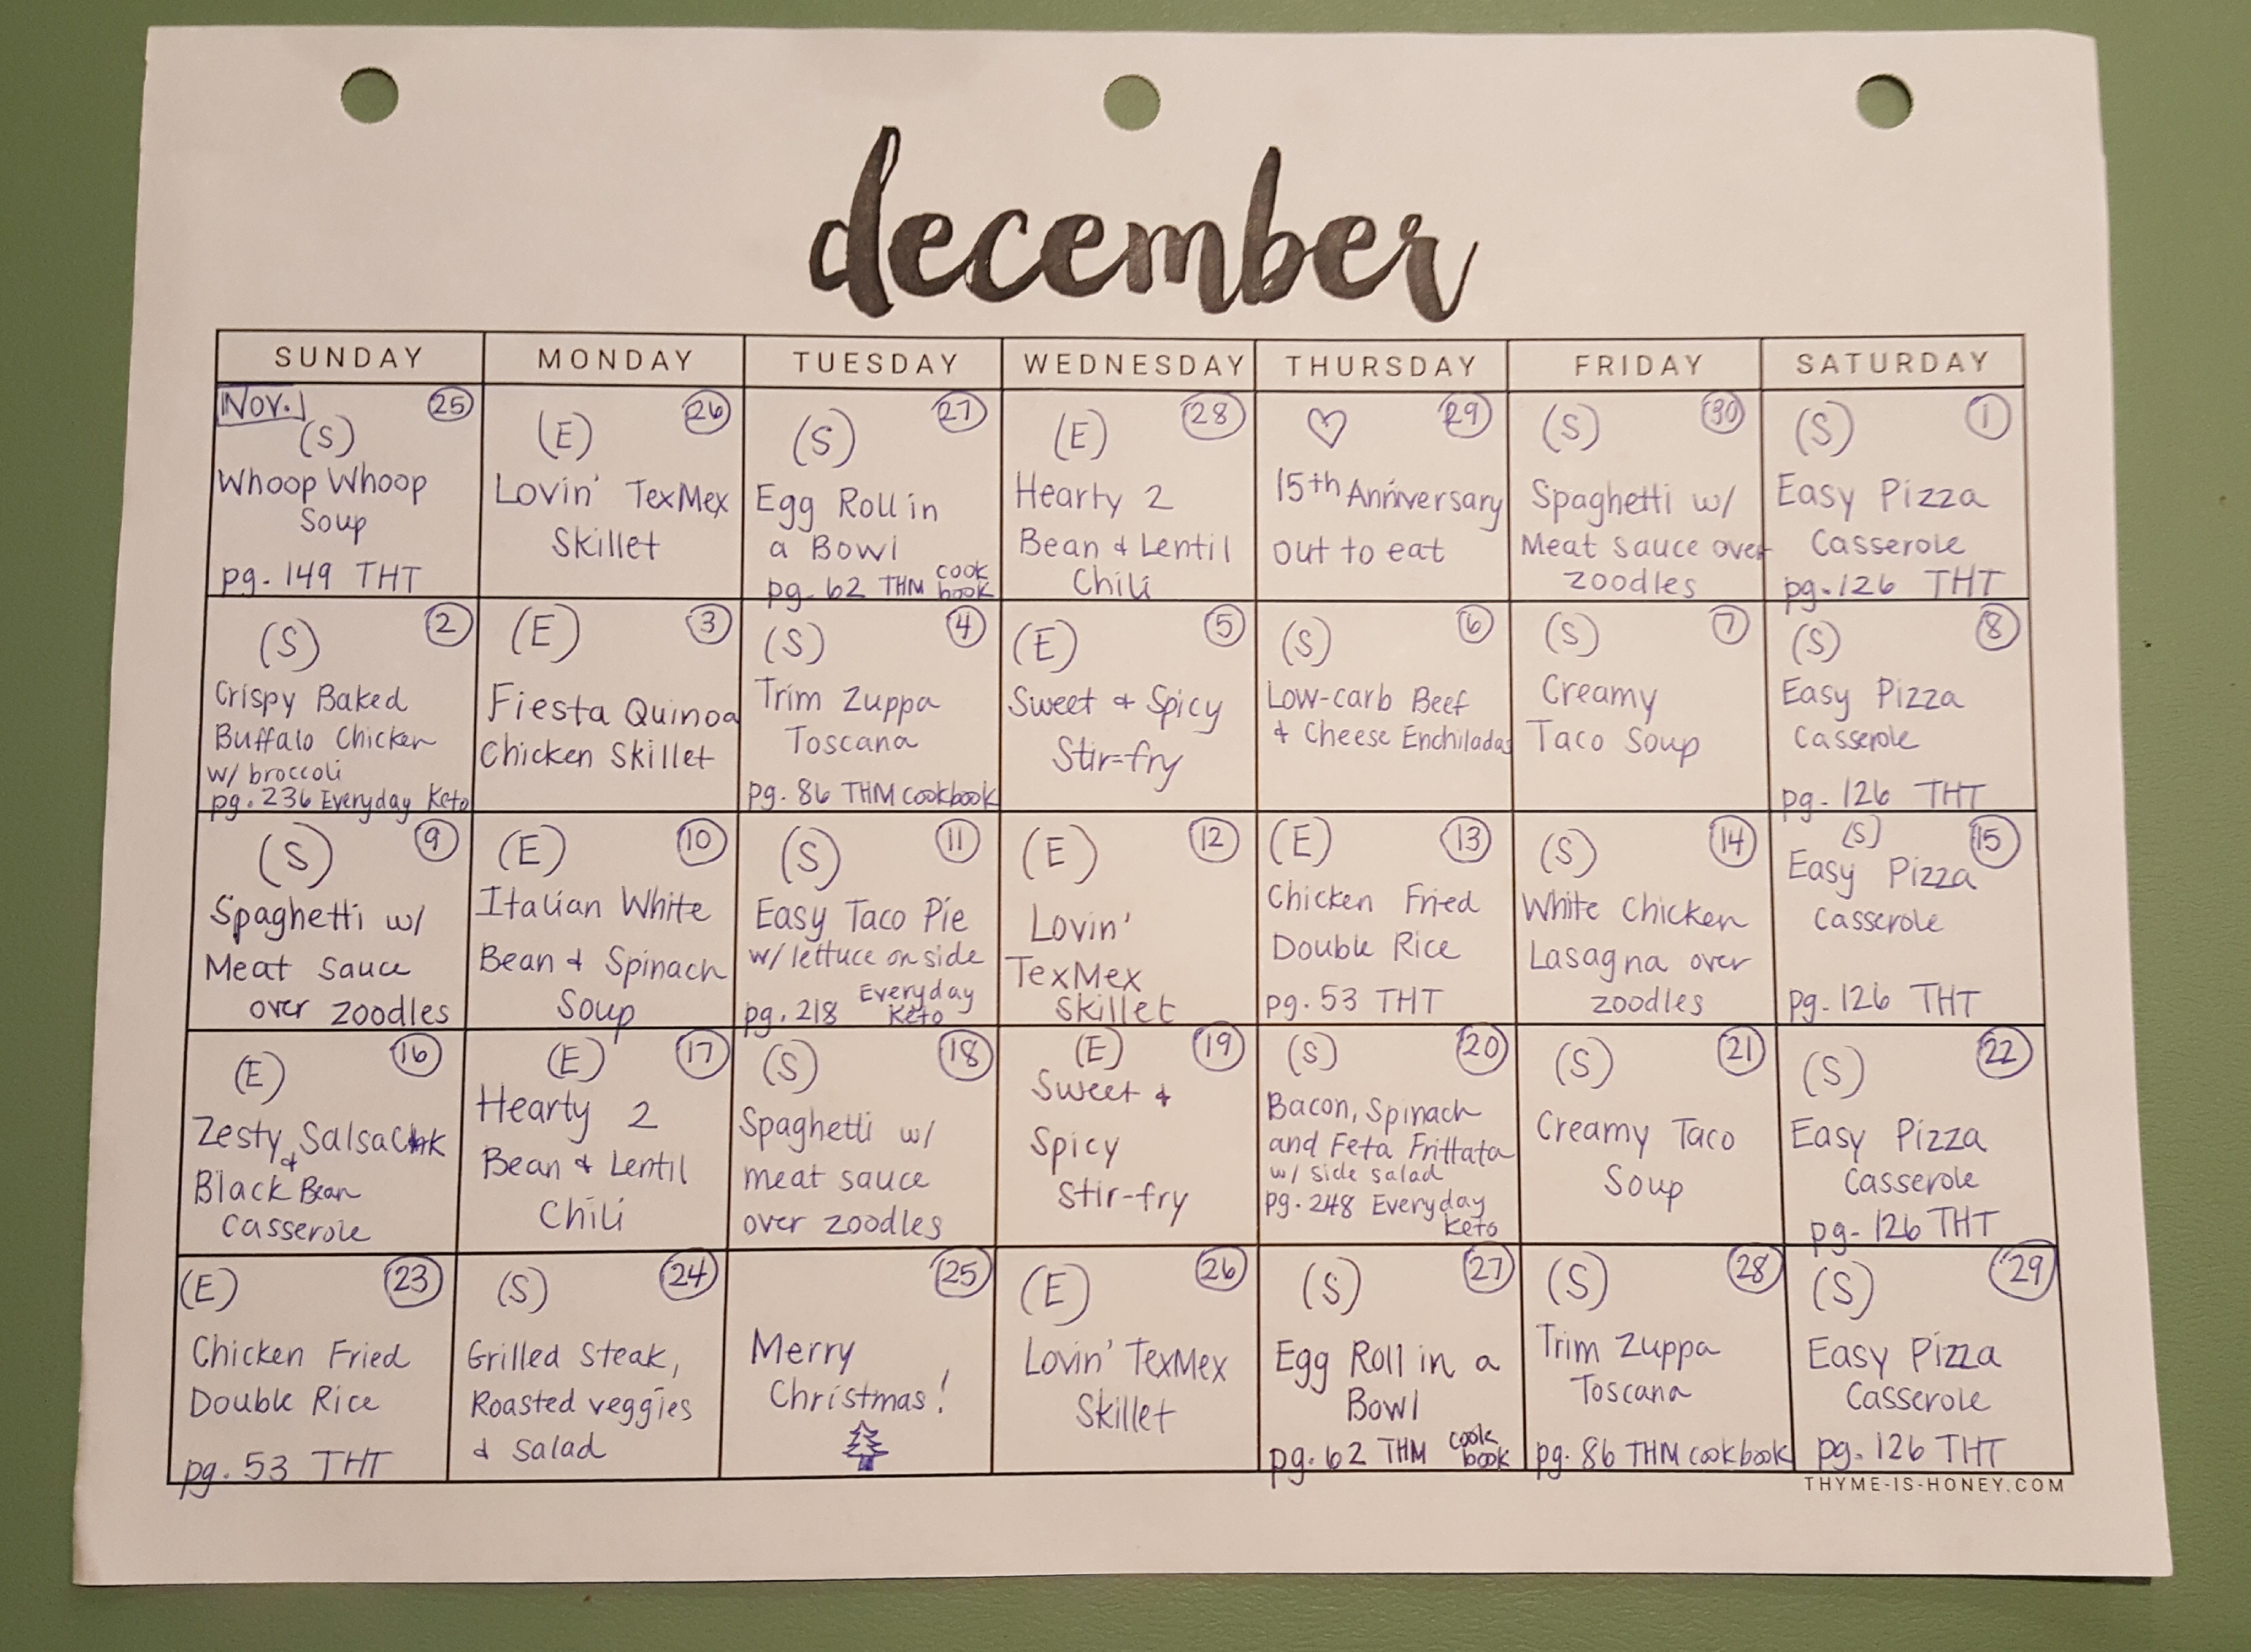 december
SUNDAY MONDAY TUESDAY WEDNESDAY THURSDAY FRIDAY SATURDAY
Nov. 25
(S)
Whoop Whoop
Soup
pg. 149 THT
26
(E)
Lovin' TexMex
Skillet
27
(S)
Egg Roll in
a Bowl
pg. 62 THM cook
book
28
(E)
Hearty 2
Bean & Lentil
Chili
♡ 29
15th Anniversary
out to eat
30
(S)
Spaghetti w/
Meat sauce over
zoodles
1
(S)
Easy Pizza
Casserole
pg. 126 THT
2
(S)
Crispy Baked
Buffalo Chicken
w/ broccoli
pg. 236 Everyday Keto
3
(E)
Fiesta Quinoa
Chicken Skillet
4
(S)
Trim Zuppa
Toscana
pg. 86 THM cookbook
5
(E)
Sweet & Spicy
Stir-fry
6
(S)
Low-carb Beef
& Cheese Enchiladas
7
(S)
Creamy
Taco Soup
8
(S)
Easy Pizza
Casserole
pg. 126 THT
9
(S)
Spaghetti w/
Meat sauce
over zoodles
10
(E)
Italian White
Bean & Spinach
Soup
11
(S)
Easy Taco Pie
w/ lettuce on side
pg. 218 Everyday
Keto
12
(E)
Lovin'
TexMex
Skillet
13
(E)
Chicken Fried
Double Rice
pg. 53 THT
14
(S)
White Chicken
Lasagna over
zoodles
15
(S)
Easy Pizza
Casserole
pg. 126 THT
16
(E)
Zesty Salsa Chk
&
Black Bean
Casserole
17
(E)
Hearty 2
Bean & Lentil
Chili
18
(S)
Spaghetti w/
meat sauce
over zoodles
19
(E)
Sweet &
Spicy
Stir-fry
20
(S)
Bacon, Spinach
and Feta Frittata
w/ side salad
pg. 248 Everyday
Keto
21
(S)
Creamy Taco
Soup
22
(S)
Easy Pizza
Casserole
pg. 126 THT
23
(E)
Chicken Fried
Double Rice
pg. 53 THT
24
(S)
Grilled Steak,
Roasted veggies
& salad
25
Merry
Christmas!
26
(E)
Lovin' TexMex
Skillet
27
(S)
Egg Roll in a
Bowl
pg. 62 THM cook
book
28
(S)
Trim Zuppa
Toscana
pg. 86 THM cookbook
29
(S)
Easy Pizza
Casserole
pg. 126 THT
THYME-IS-HONEY.COM